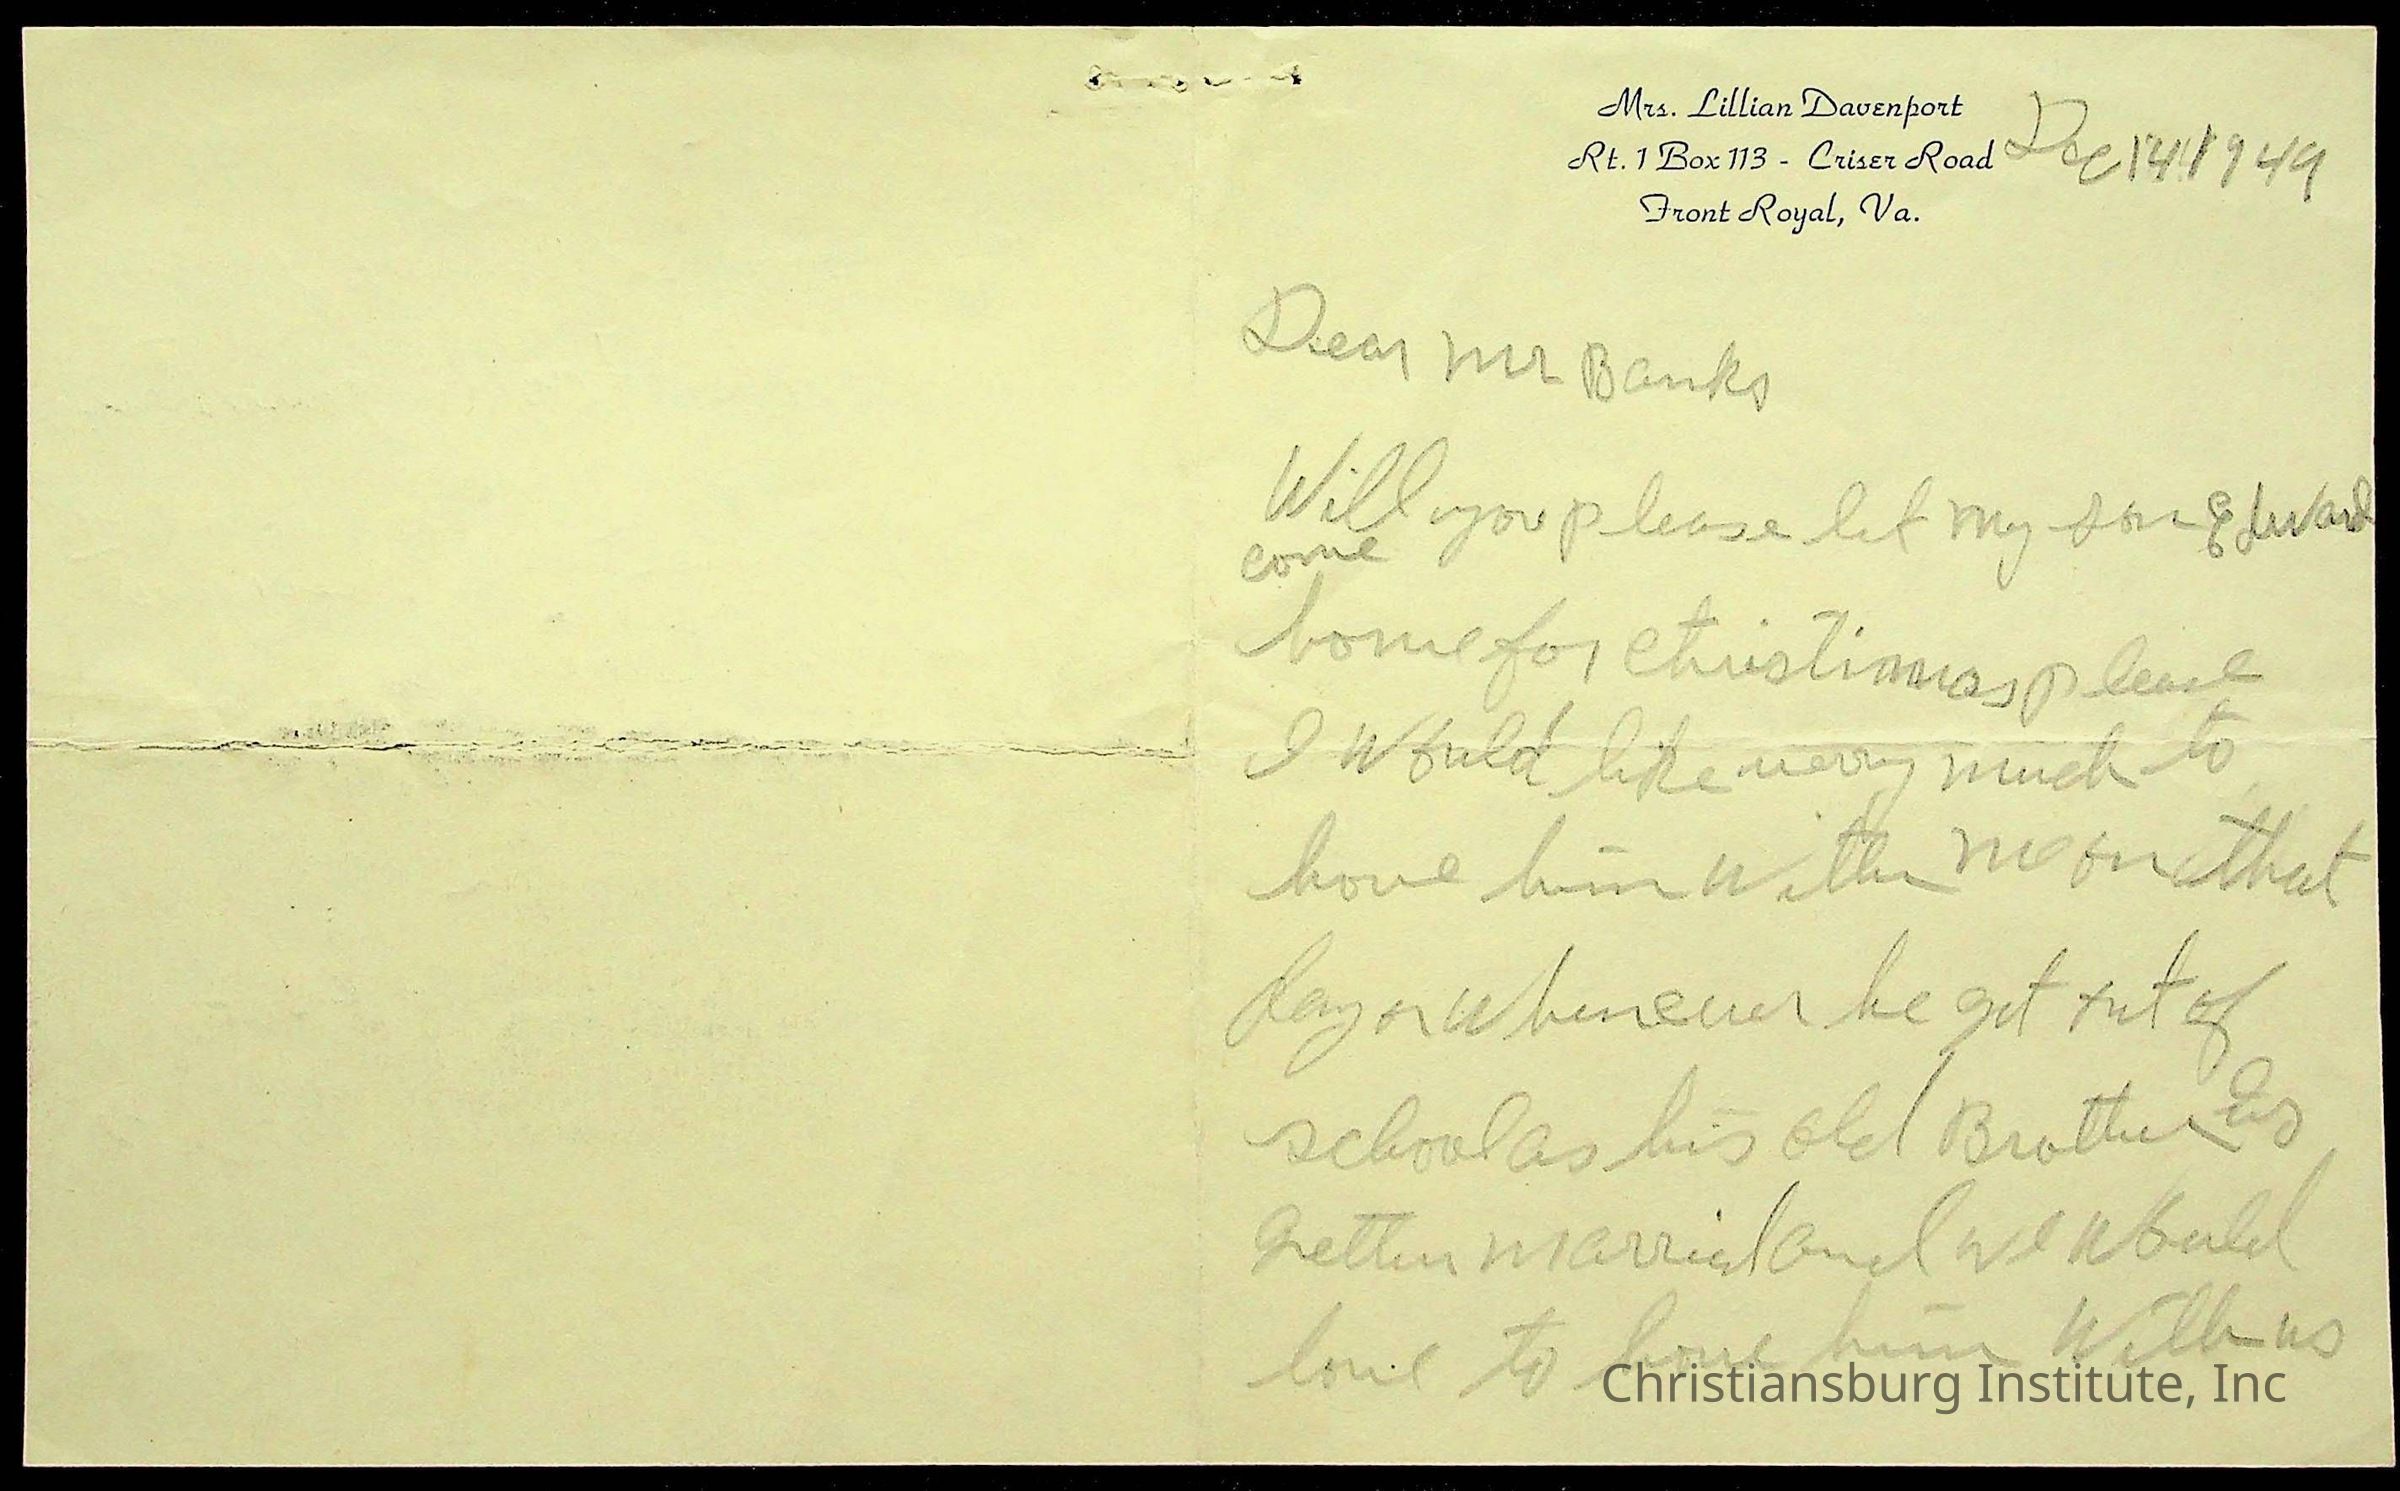 Mrs. Lillian Davenport
Rt. 1 Box 113 - Criser Road
Front Royal, Va.
Dec 14 1949
Dear Mr Banks
Will you please let my son Edward
come
home for Christimas please
I would like very much to
have him with me on that
day or whenever he get out of
school as his old Brother is
gettin married and we would
love to have him with us
Christiansburg Institute, Inc